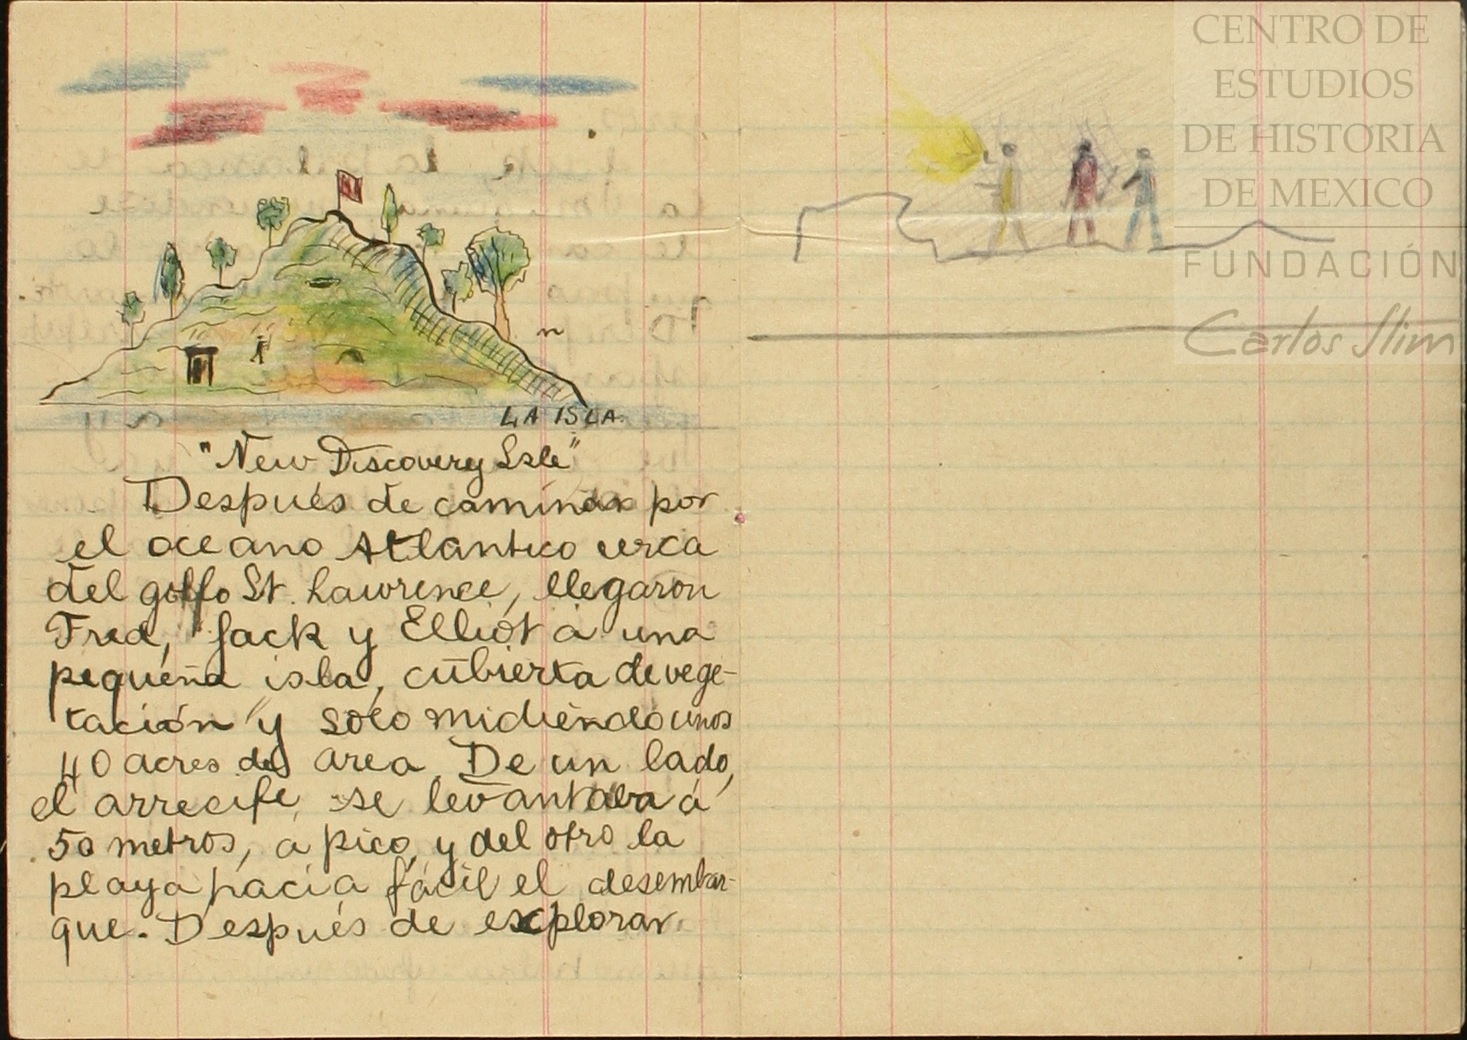 LA ISLA.
"New Discovery Isle"
Después de caminar por
el oceano Atlántico cerca
del golfo St. Lawrence, llegaron
Fred, Jack y Elliot a una
pequeña isla, cubierta de vege-
tación y solo midiendo unos
40 acres de area. De un lado,
el arrecife, se levantaba á
50 metros, a pico, y del otro la
playa hacía fácil el desembar-
que. Después de explorar
CENTRO DE
ESTUDIOS
DE HISTORIA
DE MEXICO
FUNDACIÓN
Carlos Slim